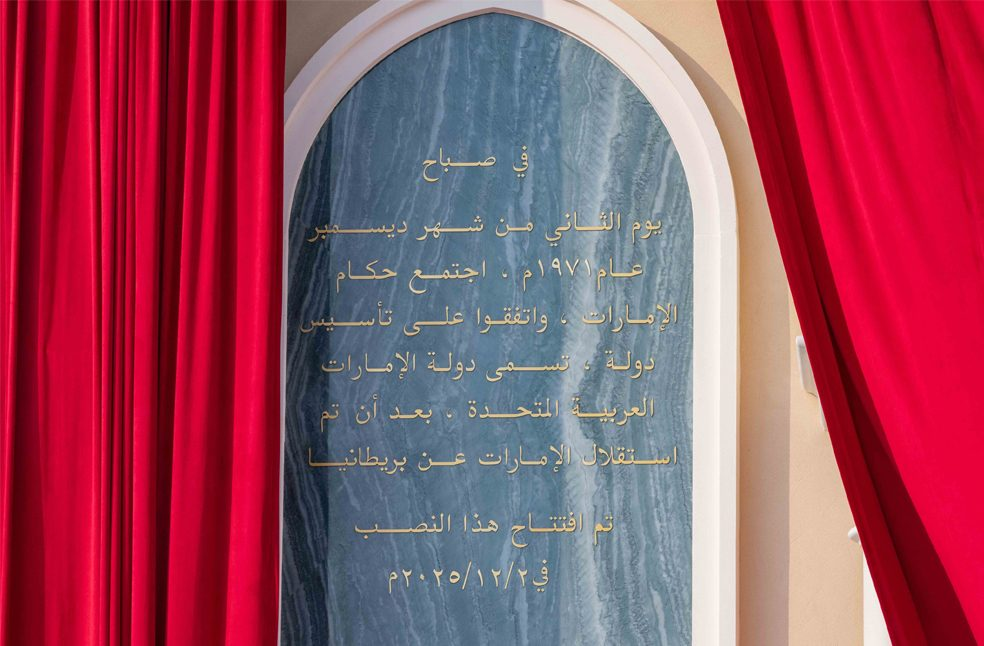 في صباح
يوم الثاني من شهر ديسمبر
عام ١٩٧١م ، اجتمع حكام
الإمارات ، واتفقوا على تأسيس
دولة ، تسمى دولة الإمارات
العربية المتحدة ، بعد أن تم
استقلال الإمارات عن بريطانيا
تم افتتاح هذا النصب
في ٢٠٢٥/١٢/٢م